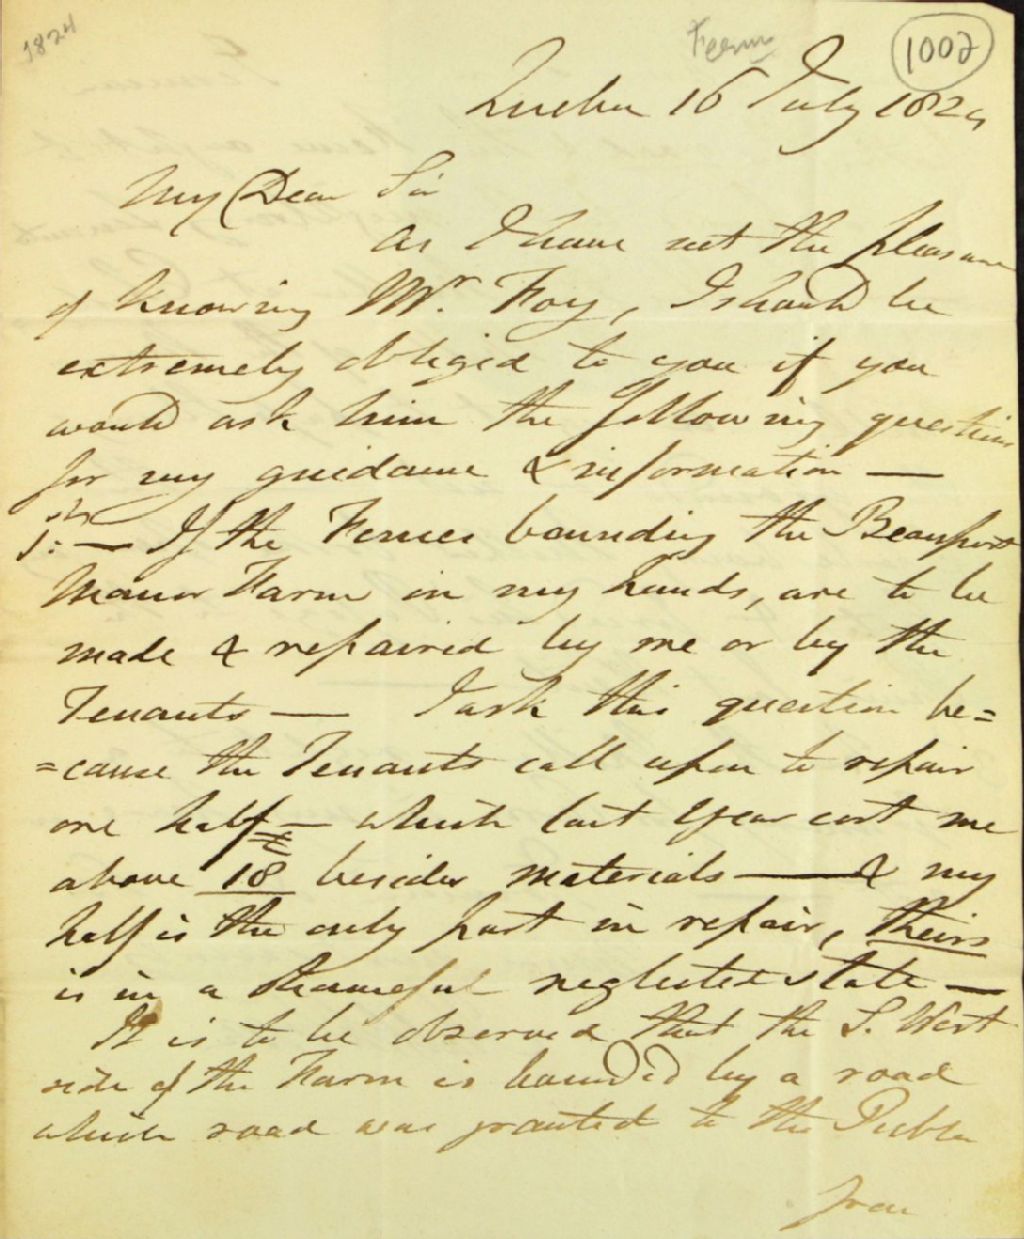 1824
1002
Quebec 16 July 1824
My Dear Sir
As I have not the pleasure
of knowing Mr. Foy, I should be
extremely obliged to you if you
would ask him the following questions
for my guidance & information —
1st: — If the Fences bounding the Beauport
Manor Farm in my hands, are to be
made & repaired by me or by the
Tenants — I ask this question be=
=cause the Tenants call upon to repair
one half — which last Year cost me
above £18 besides materials — & my
half is the only part in repair, theirs
is in a shameful neglected state —
It is to be observed that the S. West
side of the Farm is bounded by a road
which road was granted to the Public
from